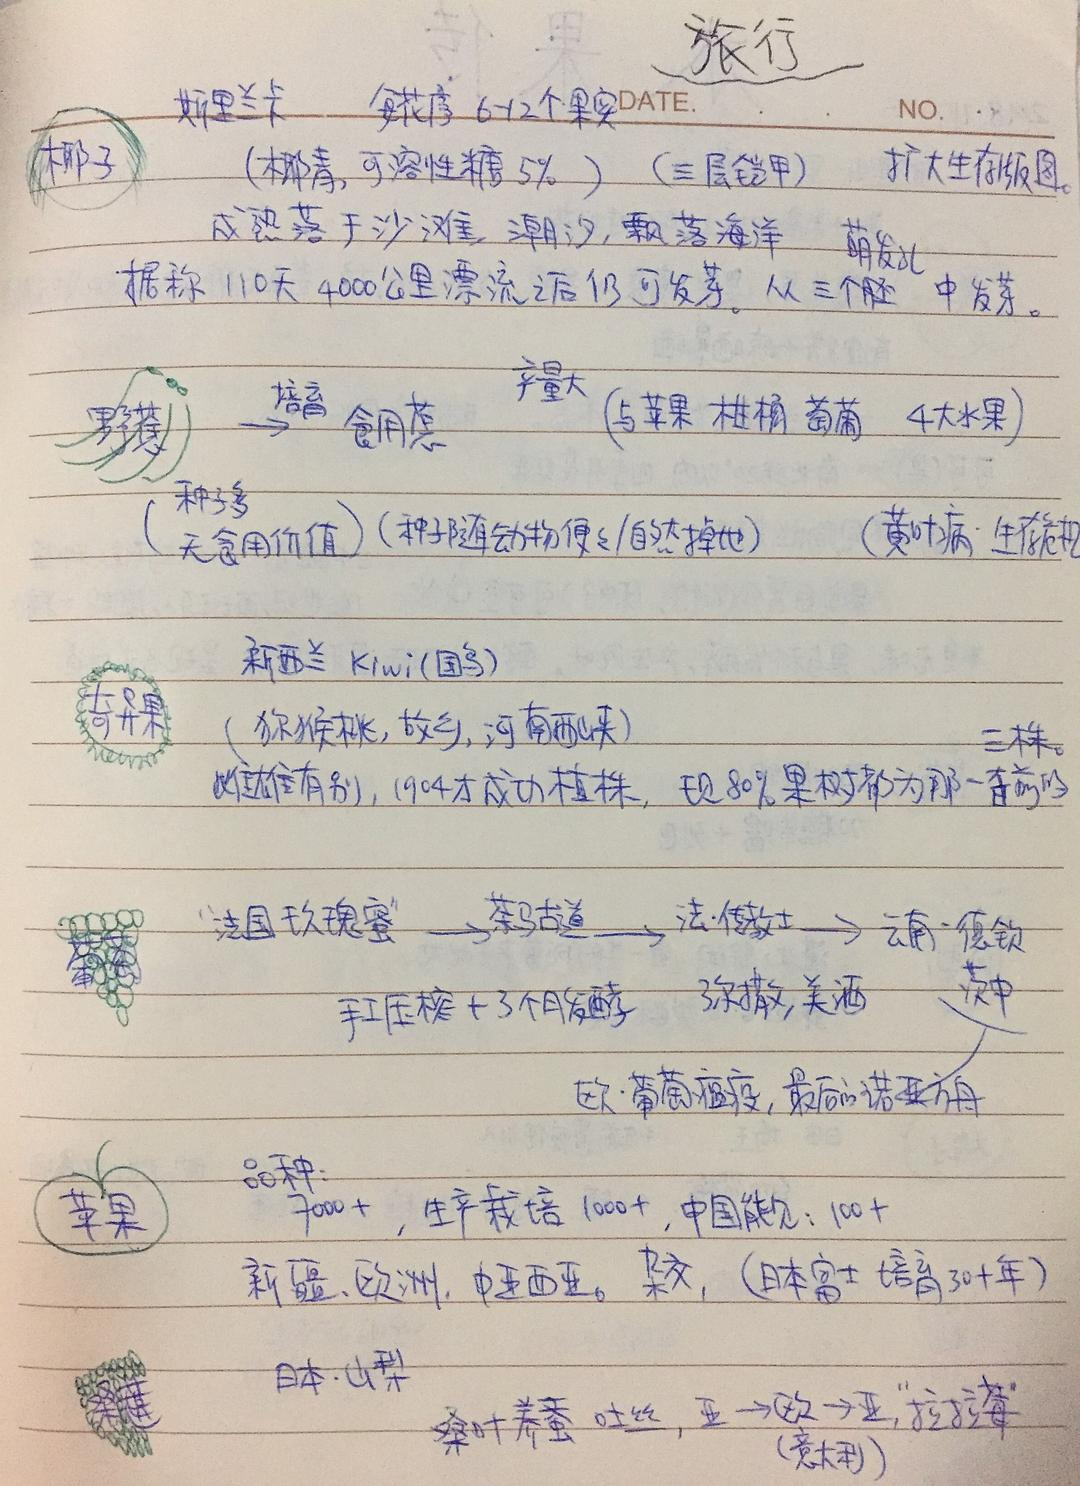 旅行
DATE. NO.
斯里兰卡 每花序 6-12个果实
椰子
(椰青,可溶性糖5%) (三层铠甲) 扩大生存版图。
成熟落于沙滩,潮汐,飘落海洋 萌发孔
据称110天4000公里漂流之后仍可发芽。从三个胚 中发芽。
野蕉 → 培育 食用蕉 产量大 (与苹果 柑橘 葡萄 4大水果)
(种子多 无食用价值) (种子随动物便便/自然掉地) (黄叶病·生存危机
新西兰 Kiwi(国鸟)
奇异果
(猕猴桃,故乡,河南西峡)
雌雄有别,1904才成功植株,现80%果树都为那一查前的 三株。
葡萄
"法国玫瑰蜜" → 茶马古道 → 法·传教士 → 云南·德钦
茨中
手工压榨+3个月发酵 弥撒,美酒
欧·葡萄瘟疫,最后的诺亚方舟
苹果
品种:
7000+,生产栽培1000+,中国能见:100+
新疆、欧洲,中亚西亚。杂交,(日本富士培育30+年)
桑葚
日本·山梨
桑叶养蚕 吐丝,亚→欧→亚,"拉拉莓"
(意大利)